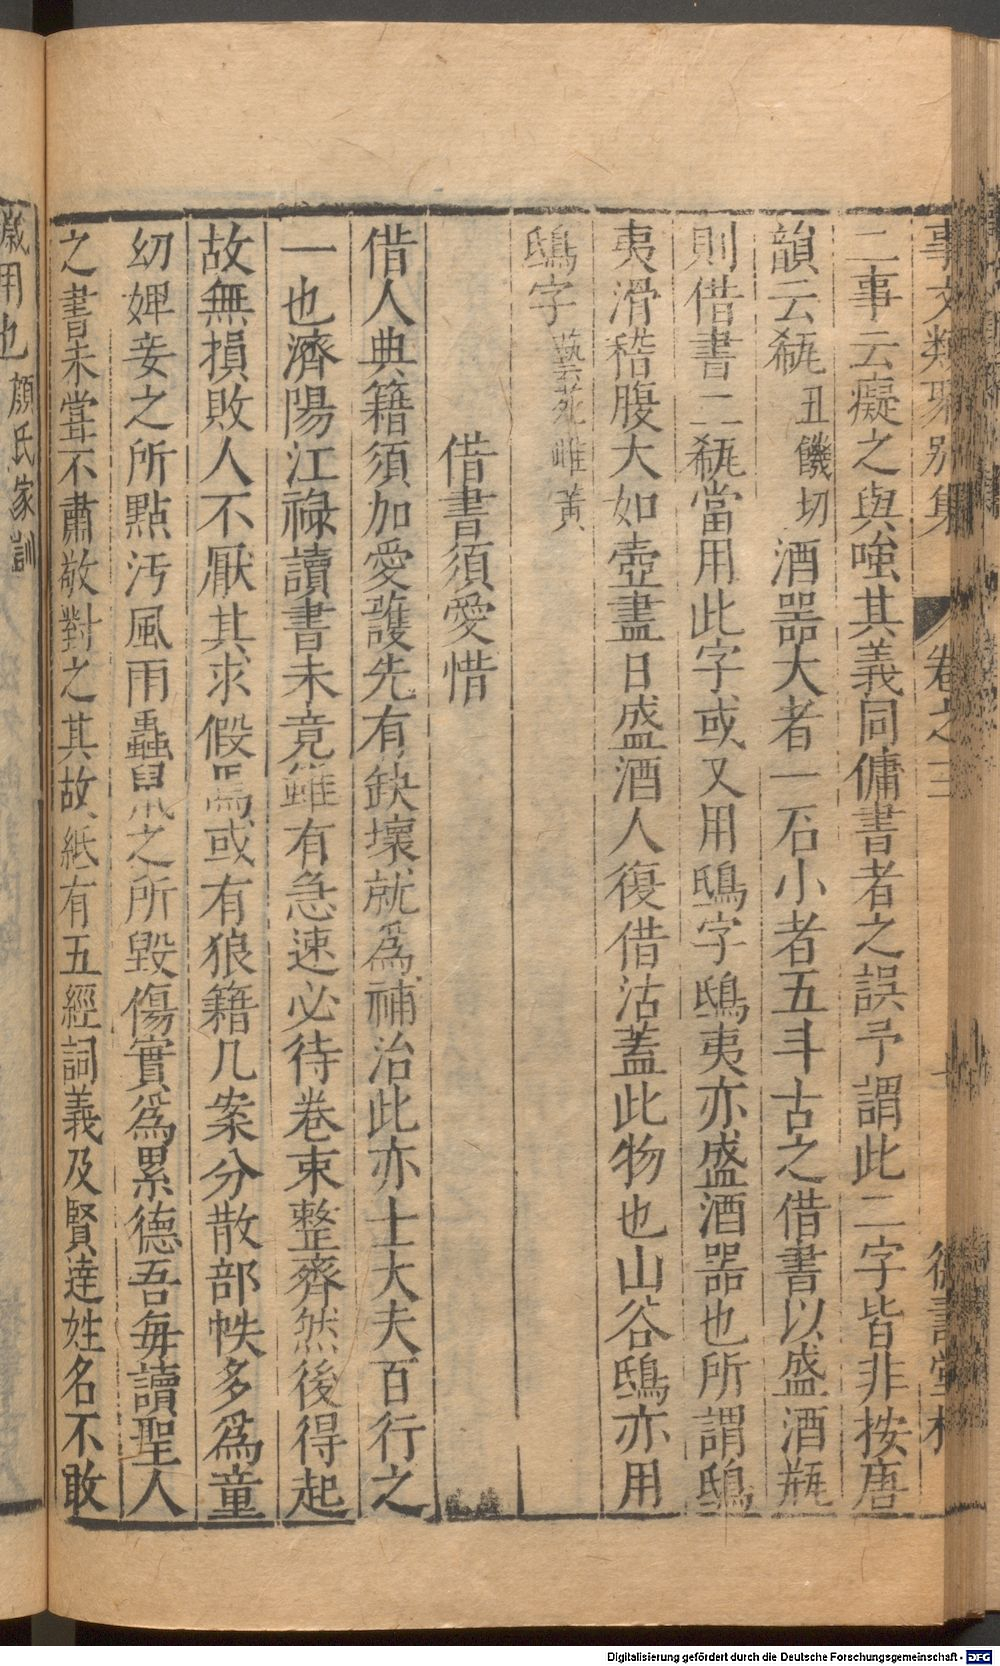 事文類聚別集 卷之三 德壽堂梓
二事云癡之與嗤其義同傭書者之誤予謂此二字皆非按唐
韻云瓻丑饑切酒器大者一石小者五斗古之借書以盛酒瓶
則借書二瓻當用此字或又用鴟字鴟夷亦盛酒器也所謂鴟
夷滑稽腹大如壺盡日盛酒人復借沽蓋此物也山谷鴟亦用
鴟字藝苑雌黃
借書須愛惜
借人典籍須加愛護先有缺壞就爲補治此亦士大夫百行之
一也濟陽江祿讀書未竟雖有急速必待卷束整齊然後得起
故無損敗人不厭其求假焉或有狼籍几案分散部帙多爲童
幼婢妾之所點汚風雨蟲鼠之所毀傷實爲累德吾每讀聖人
之書未嘗不肅敬對之其故紙有五經詞義及賢達姓名不敢
歲用也顏氏家訓
Digitalisierung gefördert durch die Deutsche Forschungsgemeinschaft - DFG